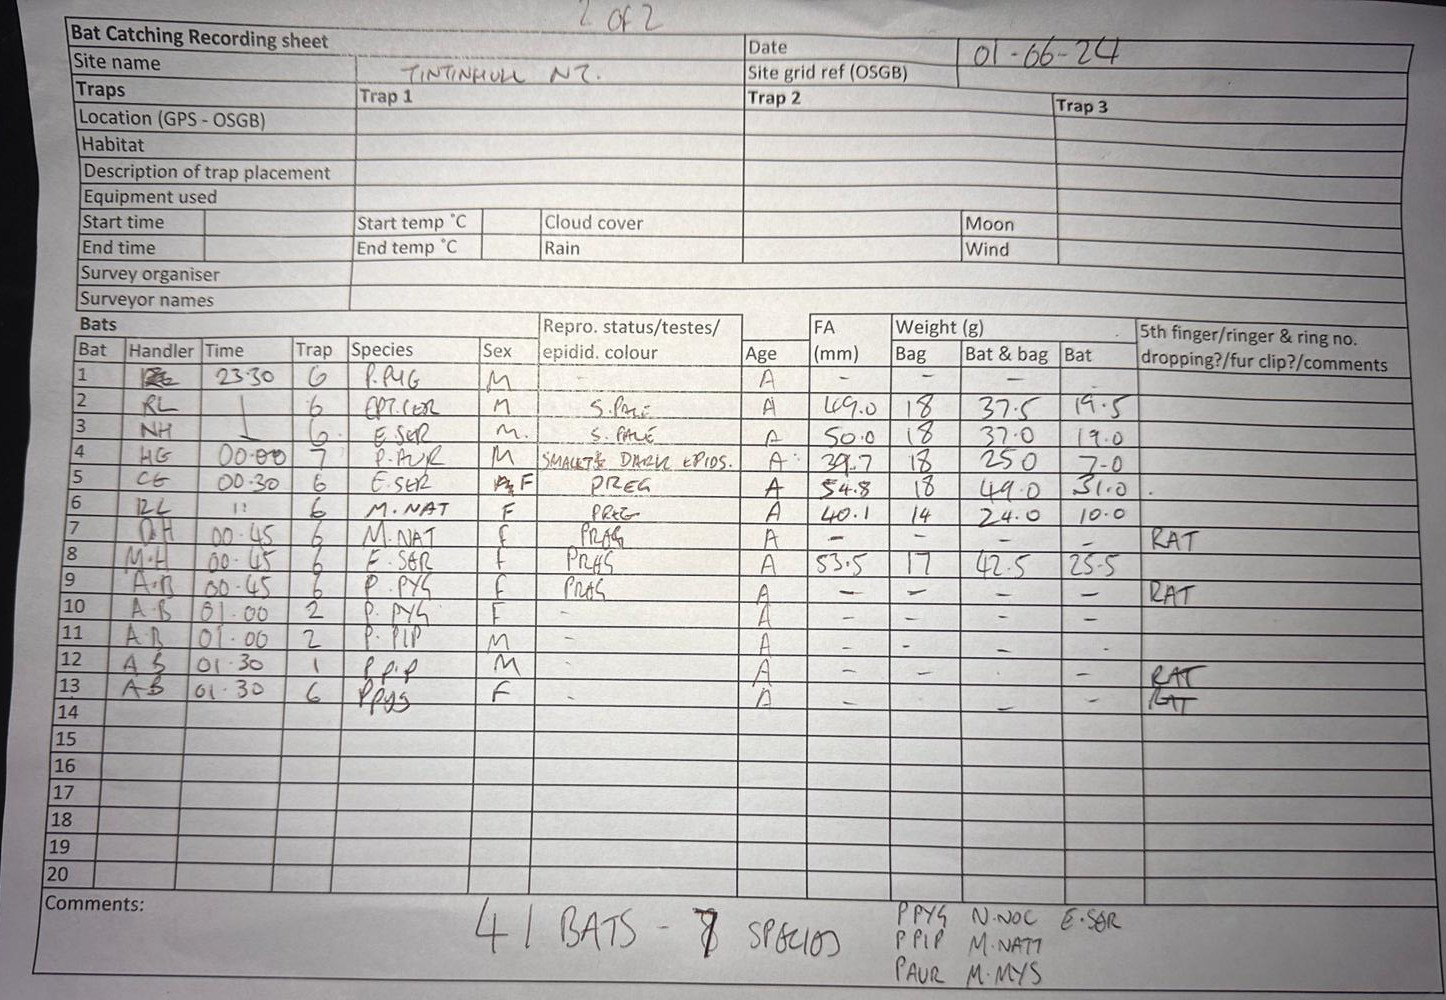 2 OF 2
Bat Catching Recording sheet Date 01-06-24
Site name TINTINHULL NT. Site grid ref (OSGB)
Traps Trap 1 Trap 2 Trap 3
Location (GPS - OSGB)
Habitat
Description of trap placement
Equipment used
Start time Start temp °C Cloud cover Moon
End time End temp °C Rain Wind
Survey organiser
Surveyor names
Bats Repro. status/testes/ FA Weight (g) 5th finger/ringer & ring no.
Bat Handler Time Trap Species Sex epidid. colour Age (mm) Bag Bat & bag Bat dropping?/fur clip?/comments
1 23:30 6 P.PYG M - A - - - -
2 RL 6 M S.PALE A 49.0 18 37.5 19.5
3 NH 6 E.SER M. S.PALE A 50.0 18 37.0 19.0
4 HG 00:00 7 P.AUR M DARK EPIDS. A 39.7 18 25.0 7.0
5 CG 00.30 6 E.SER F PREG A 54.8 18 49.0 31.0
6 RL 11 6 M.NAT F PREG A 40.1 14 24.0 10.0
7 00.45 6 M.NAT F PREG A - - - - RAT
8 M.H 00.45 6 E.SER F PREG A 53.5 17 42.5 25.5
9 A.B 00.45 6 P.PYG F PREG A - - - - RAT
10 A.B 01.00 2 P.PYG F - A - - - -
11 A.B 01.00 2 P.PIP M - A - - - -
12 AB 01.30 1 P.PIP M - A - - - - RAT
13 AB 01.30 6 P.pyg F - A - - - RAT
14
15
16
17
18
19
20
Comments: 41 BATS - 7 SPECIES
PPYG N.NOC E.SER
PPIP M.NATT
PAUR M.MYS